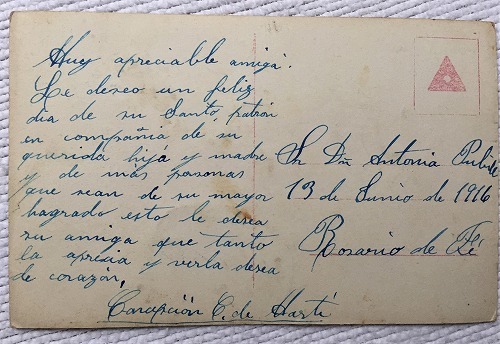 Muy apreciable amiga:
Le deseo un feliz
dia de su Santo, patrón
en compañia de su
querida hija y madre
y de mas personas
que sean de su mayor
hagrado esto le desea
su amiga que tanto
la apricia y verla desea
de corazón,
Concepción C. de Harti
Sr Dñ Antonia
13 de Junio de 1916
Rosario de Fé